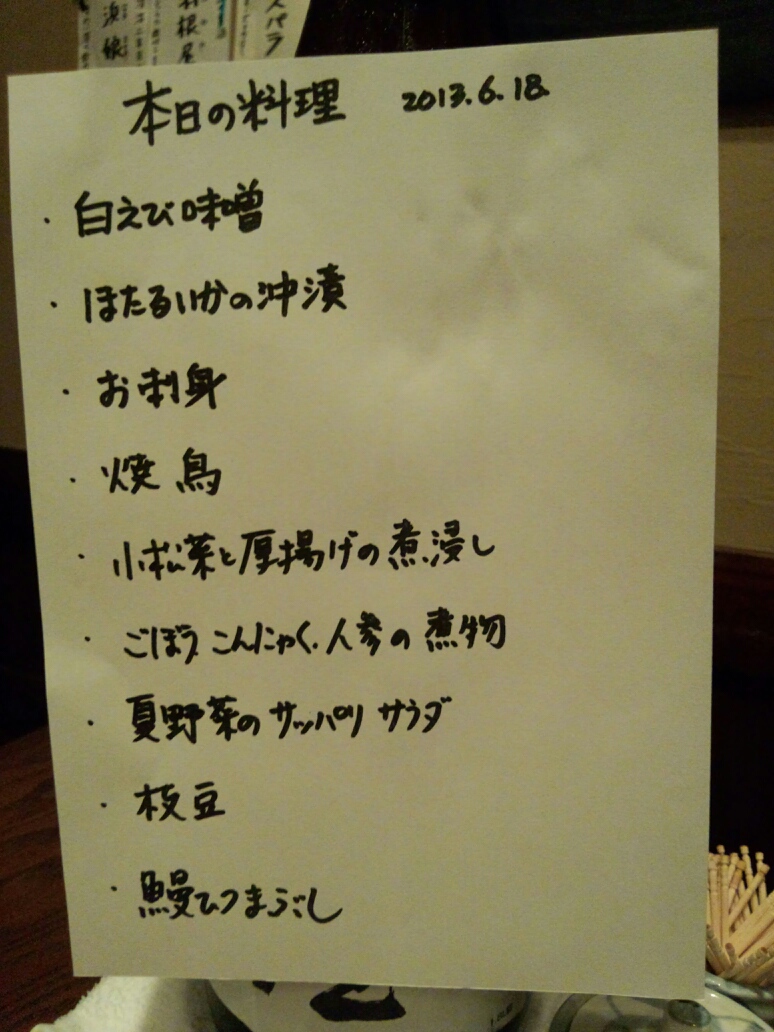 スパラ
浪娘
本日の料理 2013.6.18.
・白えび味噌
・ほたるいかの沖漬
・お刺身
・焼鳥
・小松菜と厚揚げの煮浸し
・ごぼう こんにゃく.人参の煮物
・夏野菜のサッパリ サラダ
・枝豆
・鰻ひつまぶし